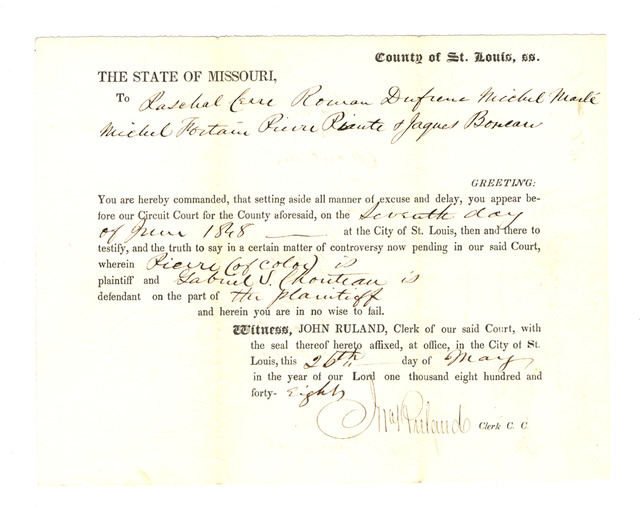 County of St. Louis, ss.
THE STATE OF MISSOURI,
To Paschal Cerre Roman Dufrene Michel Marlé
Michel Fortain Pierre & Jaques Boneau
GREETING:
You are hereby commanded, that setting aside all manner of excuse and delay, you appear be-
fore our Circuit Court for the County aforesaid, on the Seventh day
of June 1848 at the City of St. Louis, then and there to
testify, and the truth to say in a certain matter of controversy now pending in our said Court,
wherein Pierre (of color) is
plaintiff and Gabriel S. Chouteau is
defendant on the part of the plaintiff
and herein you are in no wise to fail.
Witness, JOHN RULAND, Clerk of our said Court, with
the seal thereof hereto affixed, at office, in the City of St.
Louis, this 26th day of May
in the year of our Lord one thousand eight hundred and
forty- Eight
Jno Ruland Clerk C. C.